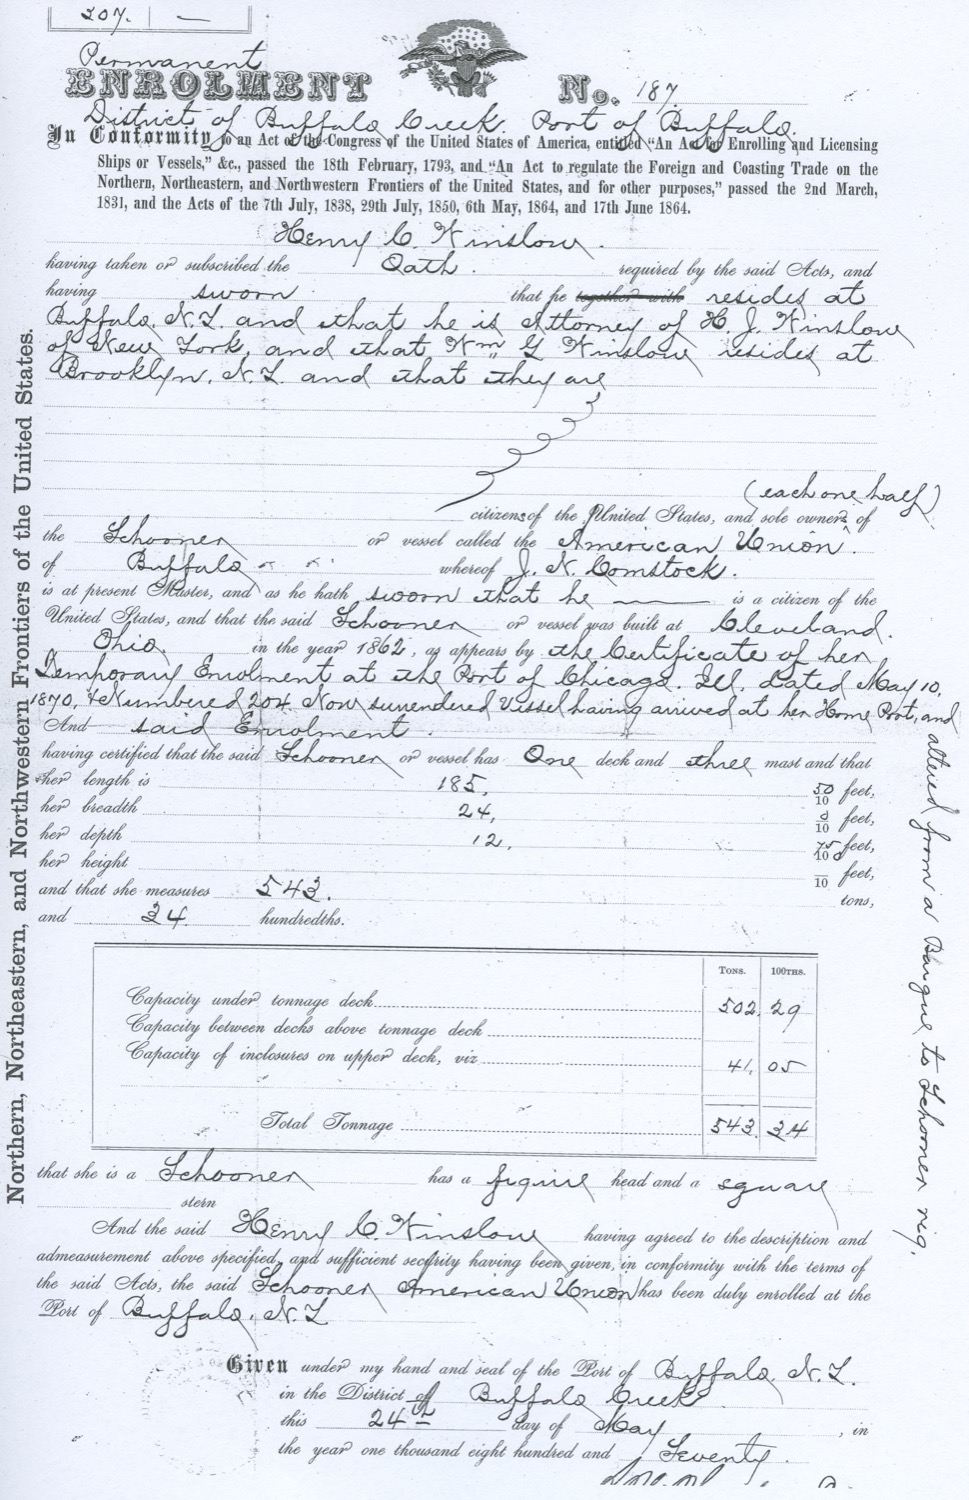 207. —
Permanent
ENROLMENT No. 187
District of Buffalo Creek Port of Buffalo.
In Conformity to an Act of the Congress of the United States of America, entitled "An Act for Enrolling and Licensing
Ships or Vessels," &c., passed the 18th February, 1793, and "An Act to regulate the Foreign and Coasting Trade on the
Northern, Northeastern, and Northwestern Frontiers of the United States, and for other purposes," passed the 2nd March,
1831, and the Acts of the 7th July, 1838, 29th July, 1850, 6th May, 1864, and 17th June 1864.
Henry C. Winslow.
having taken or subscribed the Oath. required by the said Acts, and
having sworn that he together with resides at
Buffalo, N.Y. and that he is Attorney of H. J. Winslow
of New York, and that Wm G Winslow resides at
Brooklyn, N.Y. and that they are
(each one half)
citizens of the United States, and sole owners of
the Schooner or vessel called the American Union.
of Buffalo whereof J. N. Comstock.
is at present Master, and as he hath sworn that he — is a citizen of the
United States, and that the said Schooner or vessel was built at Cleveland.
Ohio. in the year 1862, as appears by the Certificate of her
Temporary Enrolment at the Port of Chicago. Ill. dated May 10,
1870, & Numbered 204. Now surrendered Vessel having arrived at her Home Port, and
altered from a Barque to Schooner rig.
And said Enrolment.
having certified that the said Schooner or vessel has One deck and three mast and that
her length is 185, 50/10 feet,
her breadth 24, /10 feet,
her depth 12. 75/10 feet,
her height /10 feet,
and that she measures 543. tons,
and 34 hundredths.
TONS. 100THS.
Capacity under tonnage deck 502. 29
Capacity between decks above tonnage deck
Capacity of inclosures on upper deck, viz 41. 05
Total Tonnage 543. 34
that she is a Schooner has a figure head and a square
stern
And the said Henry C. Winslow having agreed to the description and
admeasurement above specified, and sufficient security having been given, in conformity with the terms of
the said Acts, the said Schooner American Union has been duly enrolled at the
Port of Buffalo, N.Y.
Given under my hand and seal of the Port of Buffalo N.Y.
in the District of Buffalo Creek
this 24th day of May, in
the year one thousand eight hundred and Seventy.
Northern, Northeastern, and Northwestern Frontiers of the United States.